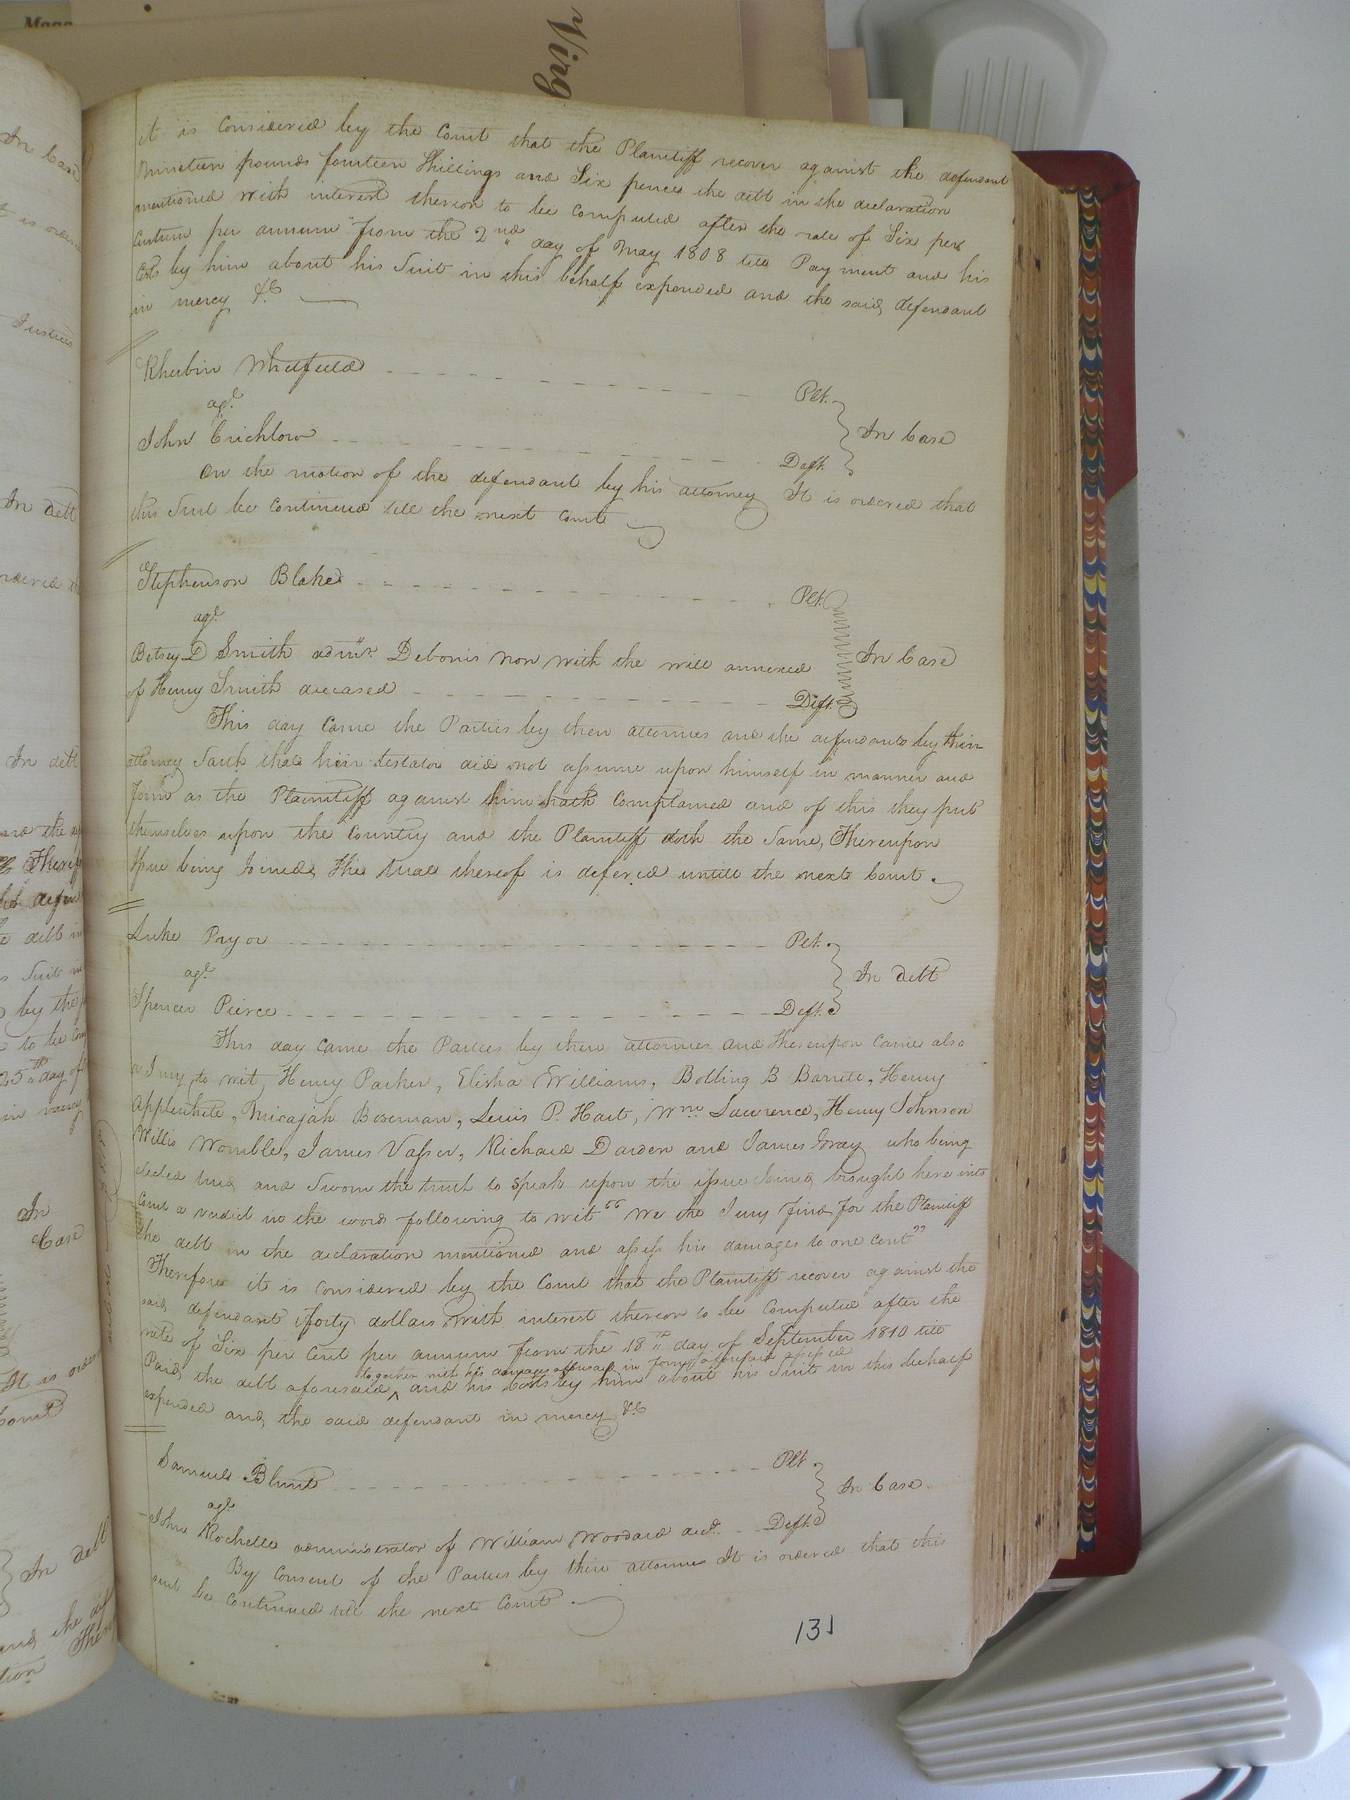 it is Considered by the Court that the Plaintiff recover against the defendant
Nineteen pounds fourteen Shillings and Six pence the debt in the declaration
mentioned with interest thereon to be Computed after the rate of Six per
Centum per annum from the 2nd day of May 1808 till Payment and his
Costs by him about his Suit in this behalf expended and the said defendant
in mercy &c
Rheubin Whitfield Plt.
agt.
In Case
John Crichlow Deft.
On the motion of the defendant by his attorney It is ordered that
this Suit be Continued till the next Court
Stephenson Blake Plt.
agt.
Betsey D Smith admx. Debonis non with the will annexed In Case
of Henry Smith deceased Deft.
This day Came the Parties by their attornies and the defendants by their
attorney Saith that her testator did not assume upon himself in manner and
form as the Plaintiff against him hath Complained and of this they put
themselves upon the Country and the Plaintiff doth the Same, Thereupon
Issue being Joined, the trial thereof is defered untill the next Court.
Luke Pryor Plt.
agt.
In debt
Spencer Pierce Deft.
This day Came the Parties by their attornies and thereupon Came also
a Jury to wit, Henry Parker, Elisha Williams, Bolling B Barrett, Henry
Applewhite, Micajah Bozeman, Lewis P. Hart, Wm. Lawrence, Henry Johnson
Willis Womble, James Vasser, Richard Darden and James Gray who being
elected tried and Sworn the truth to Speak upon the issue Joined, brought here into
Court a verdict in the word following to wit "We the Jury find for the Plaintiff
the debt in the declaration mentioned and assess his damages to one Cent"
Therefore it is Considered by the Court that the Plaintiff recover against the
said defendant forty dollars with interest thereon to be Computed after the
rate of Six per Cent per annum from the 18th day of September 1810 till
together with his damages aforesaid in form aforesaid assessed
Paid, the debt aforesaid, ^ and his Costs by him about his Suit in this behalf
expended and, the said defendant in mercy &c
Samuel Blunt Plt.
agt.
In Case.
John Rochelle administrator of William Woodard decd. Deft.
By Consent of the Parties by their attornies It is ordered that this
suit be Continued till the next Court.
131
Virg
In Case
Justices
In debt
In debt
In
Case
In debt